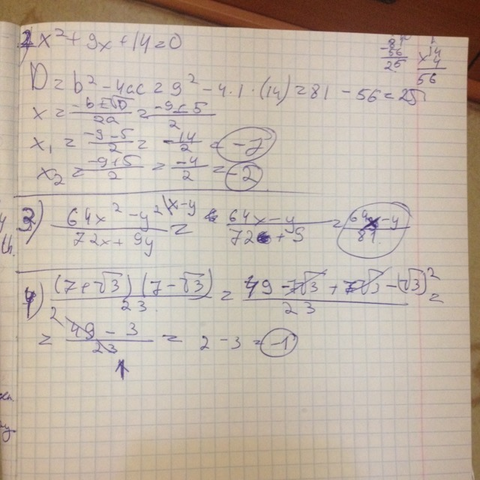 2) x² + 9x + 14 = 0
-81
56
25
x14
4
56
D = b² - 4ac = 9² - 4·1·(14) = 81 - 56 = 25
x = (-b ± √D)/2a = (-9 ± 5)/2
x₁ = (-9-5)/2 = -14/2 = -7
x₂ = (-9+5)/2 = -4/2 = -2
3) (64x² - y²)/(72x + 9y) \x-y = (64x - y)/(72 + 9) = (64x - y)/81
4) (7+√3)(7-√3)/23 = (49 - 7√3 + 7√3 - (√3)²)/23 =
= (49 - 3)/23 = 2 - 3 = -1
2
1